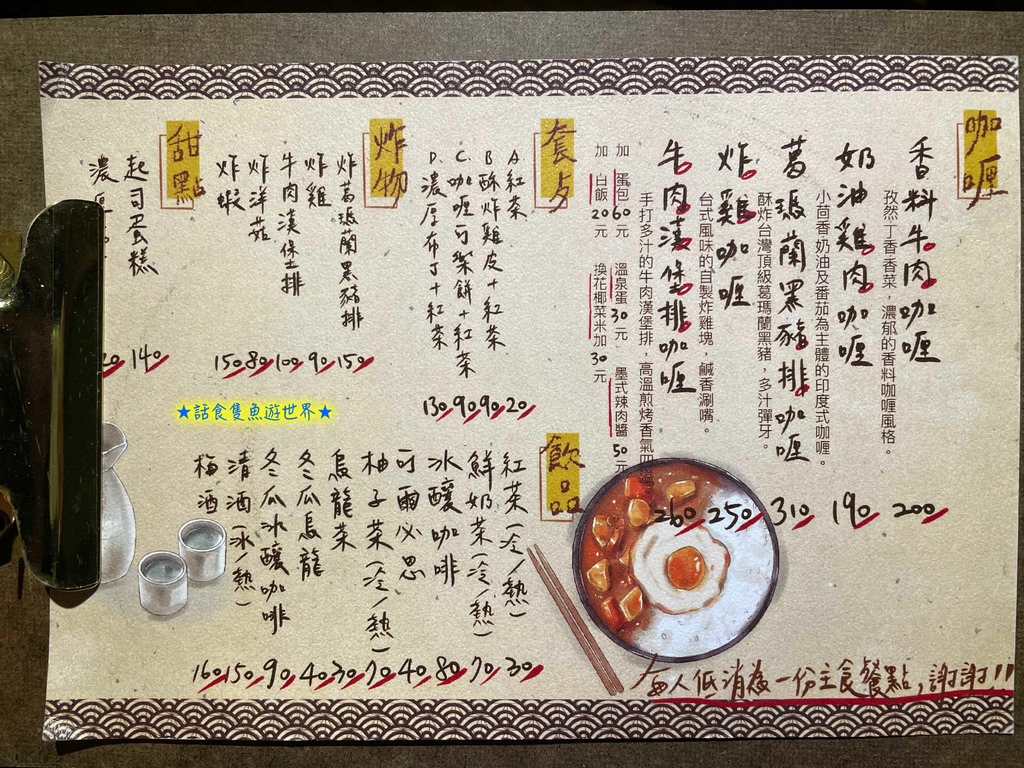 咖喱
香料牛肉咖喱 200
孜然丁香香菜，濃郁的香料咖喱風格。
奶油雞肉咖喱 190
小茴香奶油及番茄為主體的印度式咖喱。
葛瑪蘭黑豬排咖喱 310
酥炸台灣頂級葛瑪蘭黑豬，多汁彈牙。
炸雞咖喱 250
台式風味的自製炸雞塊，鹹香涮嘴。
牛肉漢堡排咖喱 260
手打多汁的牛肉漢堡排，高溫煎烤香氣四溢。
加 蛋包60元 溫泉蛋30元 墨式辣肉醬50元
加 白飯20元 換花椰菜米加30元
套点
A.紅茶 20
B.酥炸雞皮+紅茶 90
C.咖喱可樂餅+紅茶 90
D.濃厚布丁+紅茶 130
炸物
炸葛瑪蘭黑豬排 150
炸雞 90
牛肉漢堡排 100
炸洋菇 80
炸蝦 150
甜點
起司蛋糕 140
濃厚
飲品
紅茶(冷/熱) 30
鮮奶茶(冷/熱) 70
冰釀咖啡 80
可爾必思 40
柚子茶(冷/熱) 70
烏龍茶 30
冬瓜烏龍 40
冬瓜冰釀咖啡 90
清酒(冰/熱) 150
梅酒 160
每人低消為一份主食餐點,謝謝!!
★話食隻魚遊世界★